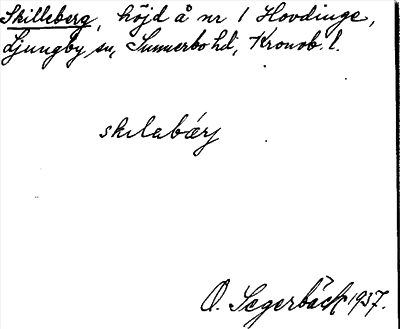 Skilleberg, höjd å nr 1 Hovdinge,
Ljungby sn, Sunnerbo hd, Kronob. l.
skılabærj
O. Segerbäck 1937.